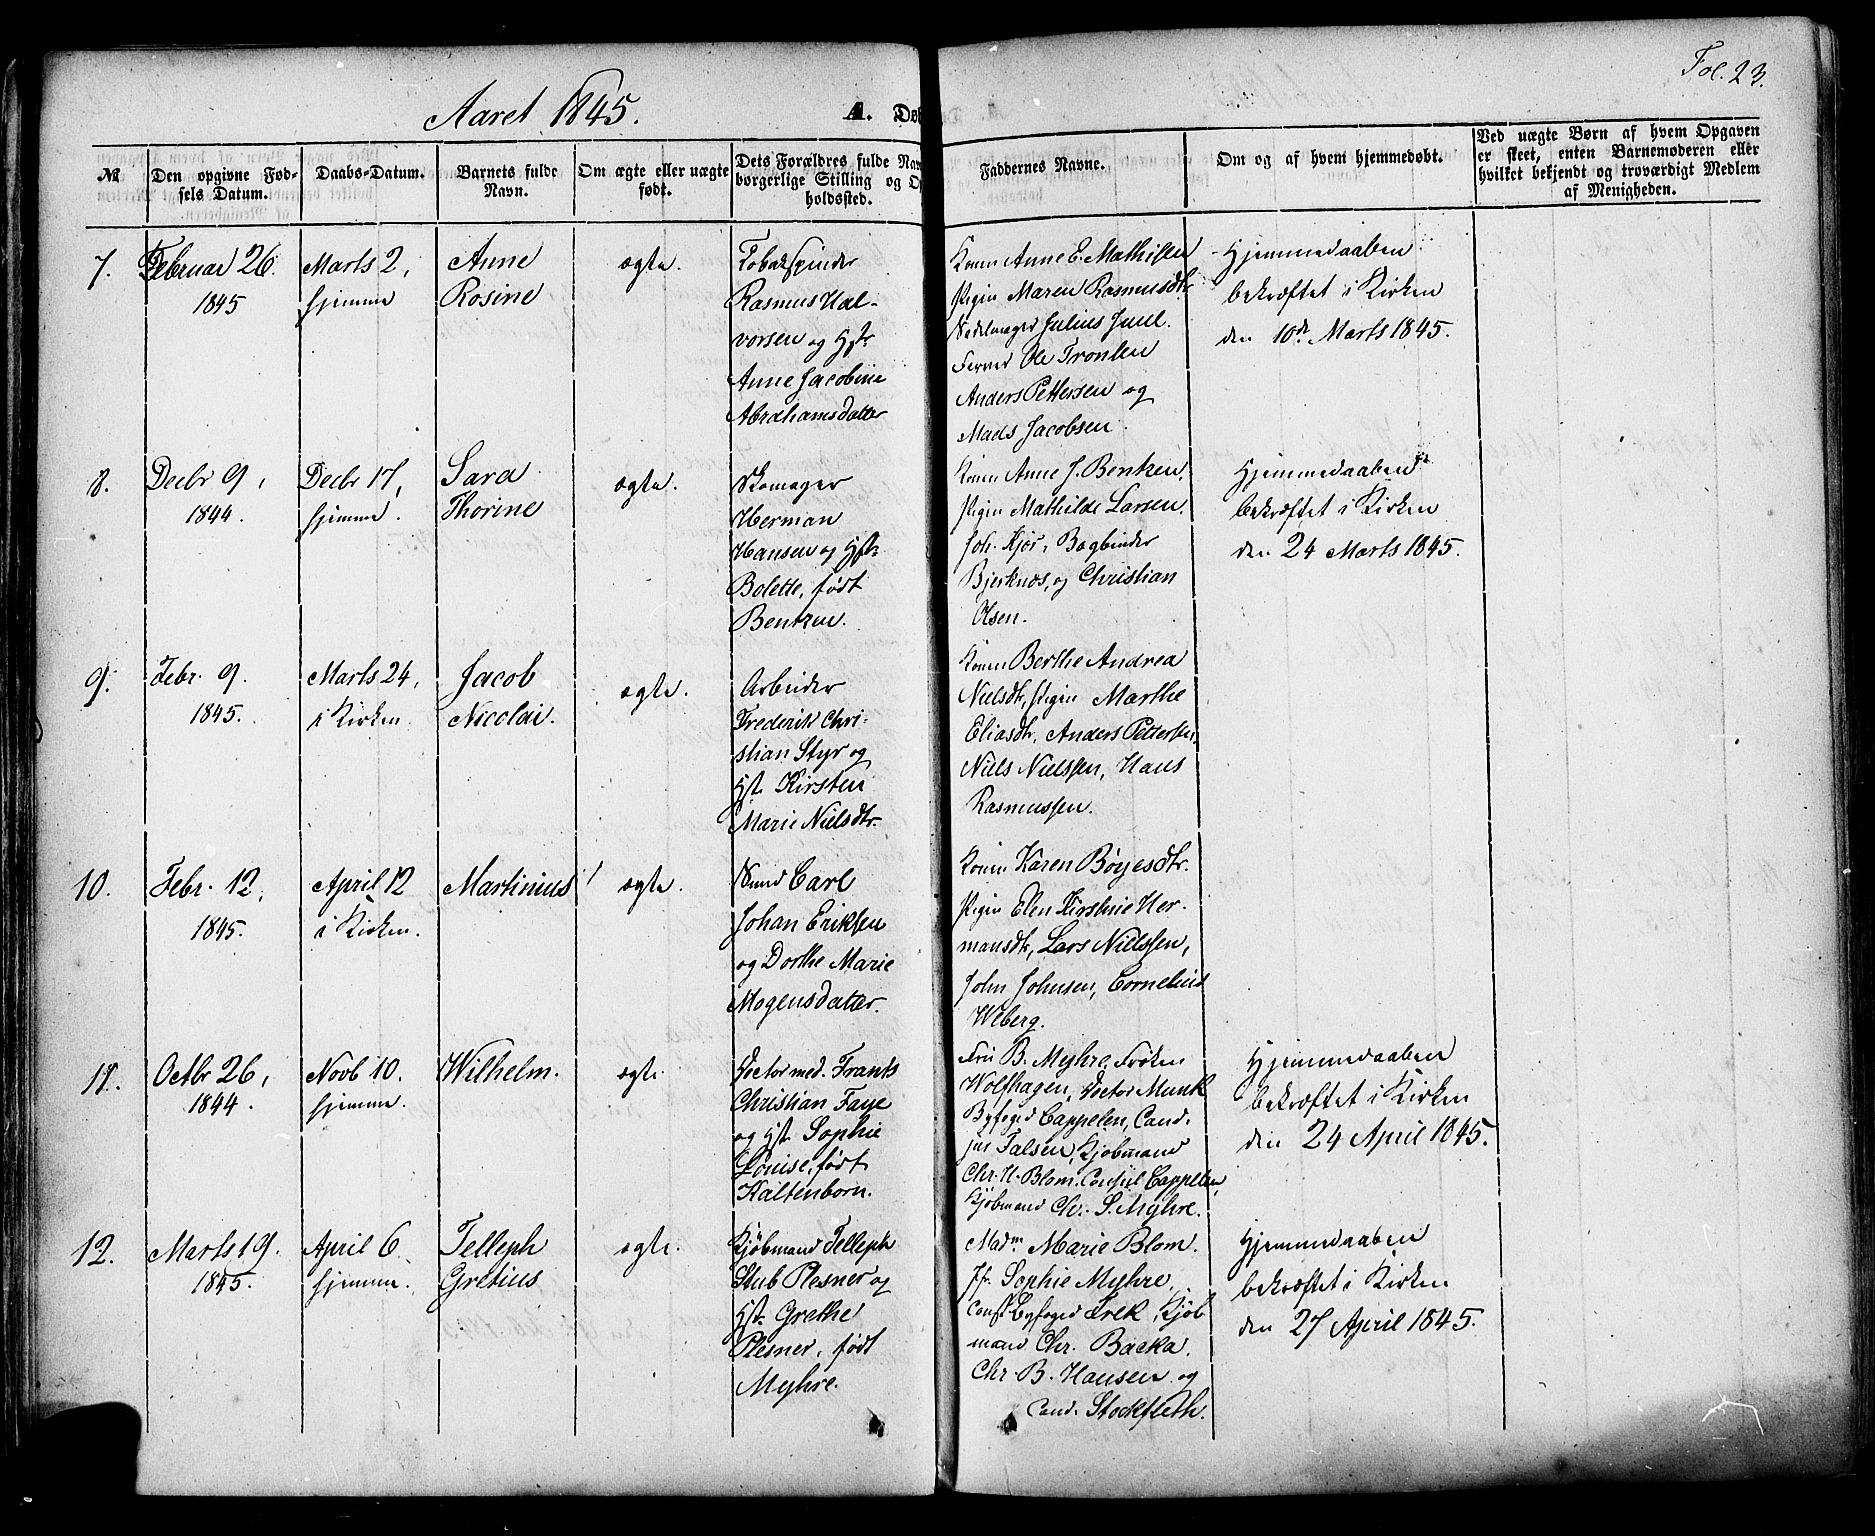 Fol. 23.
Aaret 1845.
A. Døb
№
Den opgivne Fød-
sels Datum.
Daabs-Datum.
Barnets fulde
Navn.
Om ægte eller uægte
født.
Dets Forældres fulde Nav
borgerlige Stilling og O
holdssted.
Faddernes Navne.
Om og af hvem hjemmedøbt.
Ved uægte Børn af hvem Opgaven
er skeet, enten Barnemoderen eller
hvilket bekjendt og troværdigt Medlem
af Menigheden.
7.
Februar 26.
1845
Marts 2,
hjemme
Anne
Rosine
ægte.
Tobakspinder
Rasmus Hal-
vorsen og Hst.
Anne Jacobine
Abrahamsdatter
Konen Anne E. Mathisen
Pigen Maren Rasmusdtr.
Nedelmager Julius Juul.
Ferver Ole Tronsen
Anders Pettersen og
Mads Jacobsen.
Hjemmedaaben
bekræftet i Kirken
den 10de Marts 1845.
8.
Decbr 9,
1844.
Decbr 17,
hjemme.
Sara
Thorine
ægte.
Skomager
Herman
Hansen og Hst.
Bolette, født
Bentzen.
Konen Anne J. Bentzen,
Pigen Mathilde Larsen.
Joh. Kjør, Bogbinder
Bjerknæs, og Christian
Olsen.
Hjemmedaaben
bekræftet i Kirken
den 24 Marts 1845.
9.
Febr. 9.
1845.
Marts 24,
i Kirken.
Jacob
Nicolai.
ægte.
Arbeider
Frederik Chri-
stian Styr og
Hst. Kirsten
Marie Nielsdtr.
Konen Berthe Andrea
Nielsdtr, Pigen Marthe
Eliasdtr, Anders Pettersen,
Niels Nielssen, Hans
Rasmussen.
10.
Febr. 12,
1845.
April 12
i Kirken.
Martinius
ægte.
Svend Carl
Johan Eriksen
og Dorthe Marie
Mogensdatter.
Konen Karen Bøyesdtr.
Pigen Elen Kirstine Her-
mansdtr, Lars Nielssen,
John Johnsen, Cornelius
Weberg.
11.
Octbr 26,
1844.
Novb 10.
hjemme.
Wilhelm.
ægte.
Doctor med. Frants
Christian Faye
og Hst. Sophie
Louise, født
Kaltenborn.
Fru B. Myhre, Frøken
Wolfhagen, Doctor Munk
Byfoged Cappelen, Cand.
jur Falsen, Kjøbmand
Chr. H. Blom, Consul Cappelen,
Kjøbmand Chr. S. Myhre.
Hjemmedaaben
bekræftet i Kirken
den 24 April 1845.
12.
Marts 19.
1845.
April 6
hjemme.
Telleph
Gretius
ægte.
Kjøbmand Telleph
Stub Plesner og
Hst. Grethe
Plesner, født
Myhre.
Madm Marie Blom.
Jfr. Sophie Myhre,
Const. Byfoged Trek, Kjøb
mand Chr. Backa.
Chr B. Hansen og
Cand. Stockfleth.
Hjemmedaaben
bekræftet i Kirken
den 27 April 1845.